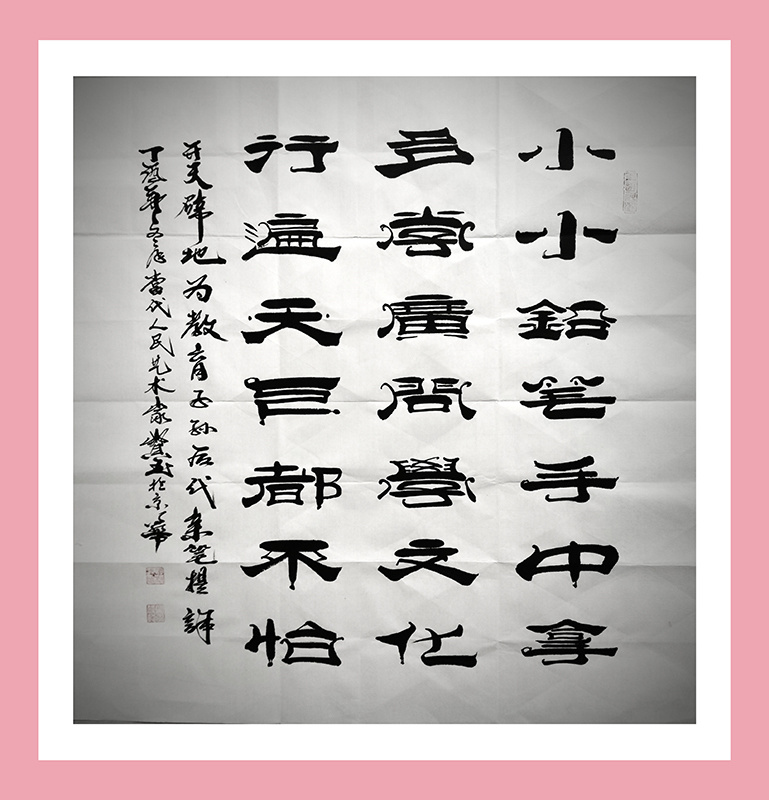 小小鉛笔手中拿
多学廣問學文化
行遍天巨都不怕
开天辟地为教育子孙后代亲笔提詳
丁酉年冬當代人民艺术家於京華